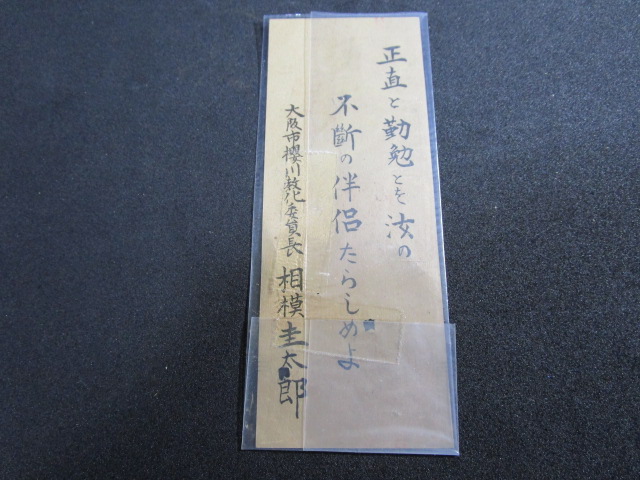 正直と勤勉とを汝の
不斷の伴侶たらしめよ
大阪市櫻川教化委員長 相模圭太郎